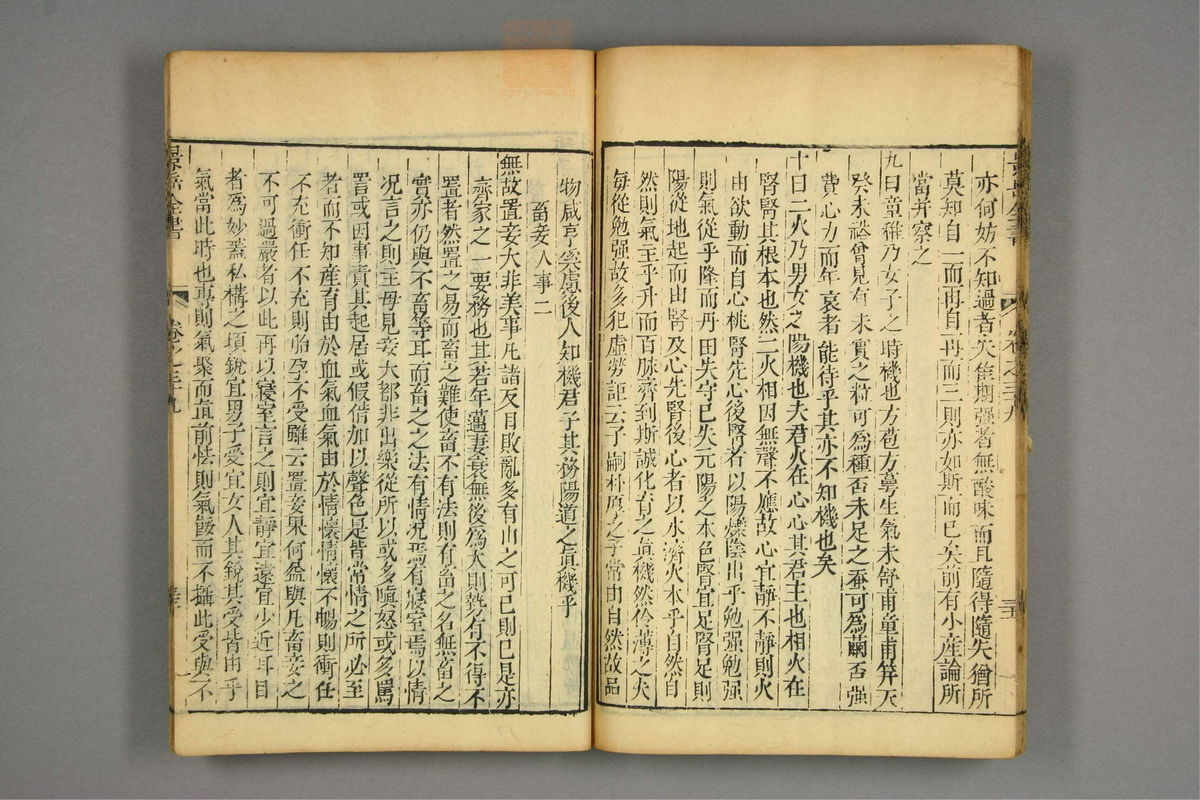 亦何妨不知過者失佳期強者無酸味而且隨得隨失猶所
莫知自一而再自再而三則亦如斯而已矣前有小產論所
當并察之
九曰童稚乃女子之時機也方苞方萼生氣未舒甫童甫笄天
癸未裕曾見有未實之粒可為種否未足之蠶可為繭否強
費心力而年衰者能待乎其亦不知機也矣
十曰二火乃男女之陽機也夫君火在心心其君主也相火在
腎腎其根本也然二火相因無聲不應故心宜靜不靜則火
由欲動而自心挑腎先心後腎者以陽爍陰出乎勉強勉強
則氣從乎降而丹田失守已失元陽之本色腎宜足腎足則
陽從地起而由腎及心先腎後心者以水濟火本乎自然自
然則氣主乎升而百脉齊到斯誠化育之真機然伶薄之夫
每從勉強故多犯虛勞詎云子嗣朴厚之子常由自然故品
物咸亨奚慮後人知機君子其務陽道之真機乎
畜妾人事二
無故置妾大非美事凡諸反目敗亂多有由之可已則已是亦
齊家之一要務也其若年邁妻衰無後為大則勢有不得不
置者然置之易而畜之難使畜不有法則有畜之名無畜之
實亦仍與不畜等耳而畜之之法有情況焉有寢室焉以情
況言之則主母見妾大都非出樂從所以或多嗔怒或多罵
詈或因事責其起居或假借加以聲色是皆常情之所必至
者而不知產育由於血氣血氣由於情懷情懷不暢則衝任
不充衝任不充則胎孕不受雖云置妾果何益與凡畜妾之
不可過嚴者以此再以寢室言之則宜靜宜遠宜少近耳目
者為妙蓋私構之頃銳宜男子受宜女人其銳其受皆由乎
氣當此時也專則氣聚而直前怯則氣餒而不攝此受與不